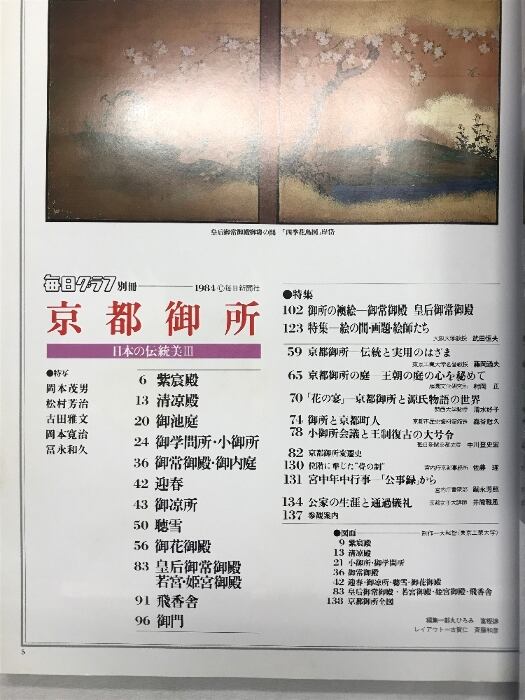 皇后御常御殿御寝の間 「四季花鳥図」岸岱
毎日グラフ別冊 1984 ©毎日新聞社
京都御所
日本の伝統美III
●特写
岡本茂男
松村芳治
古田雅文
岡本寛治
冨永和久
6 紫宸殿
13 清涼殿
20 御池庭
24 御学問所・小御所
36 御常御殿・御内庭
42 迎春
43 御涼所
50 聴雪
56 御花御殿
83 皇后御常御殿
若宮・姫宮御殿
91 飛香舎
96 御門
●特集
102 御所の襖絵―御常御殿 皇后御常御殿
123 特集―絵の間・画題・絵師たち
大阪大学教授 武田恒夫
59 京都御所―伝統と実用のはざま
東京工業大学名誉教授 藤岡通夫
65 京都御所の庭―王朝の庭の心を秘めて
70 「花の宴」―京都御所と源氏物語の世界
関西大学教授 清水好子
74 御所と京都町人
78 小御所会議と王制復古の大号令
82 京都御所変遷史
130 位階に準じた“畳の制”
131 宮中年中行事―「公事録」から
134 公家の生涯と通過儀礼
137 参観案内
●図面
9 紫宸殿
13 清涼殿
21 小御所・御学問所
36 御常御殿
42 迎春・御涼所・聴雪・御花御殿
83 皇后御常御殿・若宮御殿・姫宮御殿・飛香舎
138 京都御所全図
レイアウト―古賀仁 斉藤和彦
5